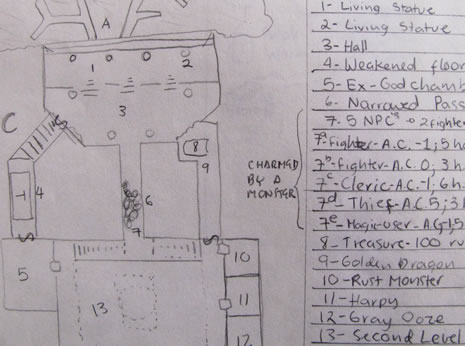 A
1
2
3
C
S
T
4
8
9
6
7
S
S
5
13
10
11
12
CHARMED
BY A
MONSTER
1- Living Statue
2- Living Statue
3- Hall
4- Weakened floor
5- Ex-God chamb
6- Narrowed Pass
7. 5 NPCs → 2 fighter
7a fighter-A.C. -1; 5 h
7b- fighter-A.C. 0; 3 h
7c- Cleric-A.C.-1; 6h
7d- Thief-A.C. 5; 3
7e- Magic-user-A.C.
8- Treasure-100 ru
9- Golden Dragon
10- Rust Monster
11- Harpy
12- Gray Ooze
13- Second Level